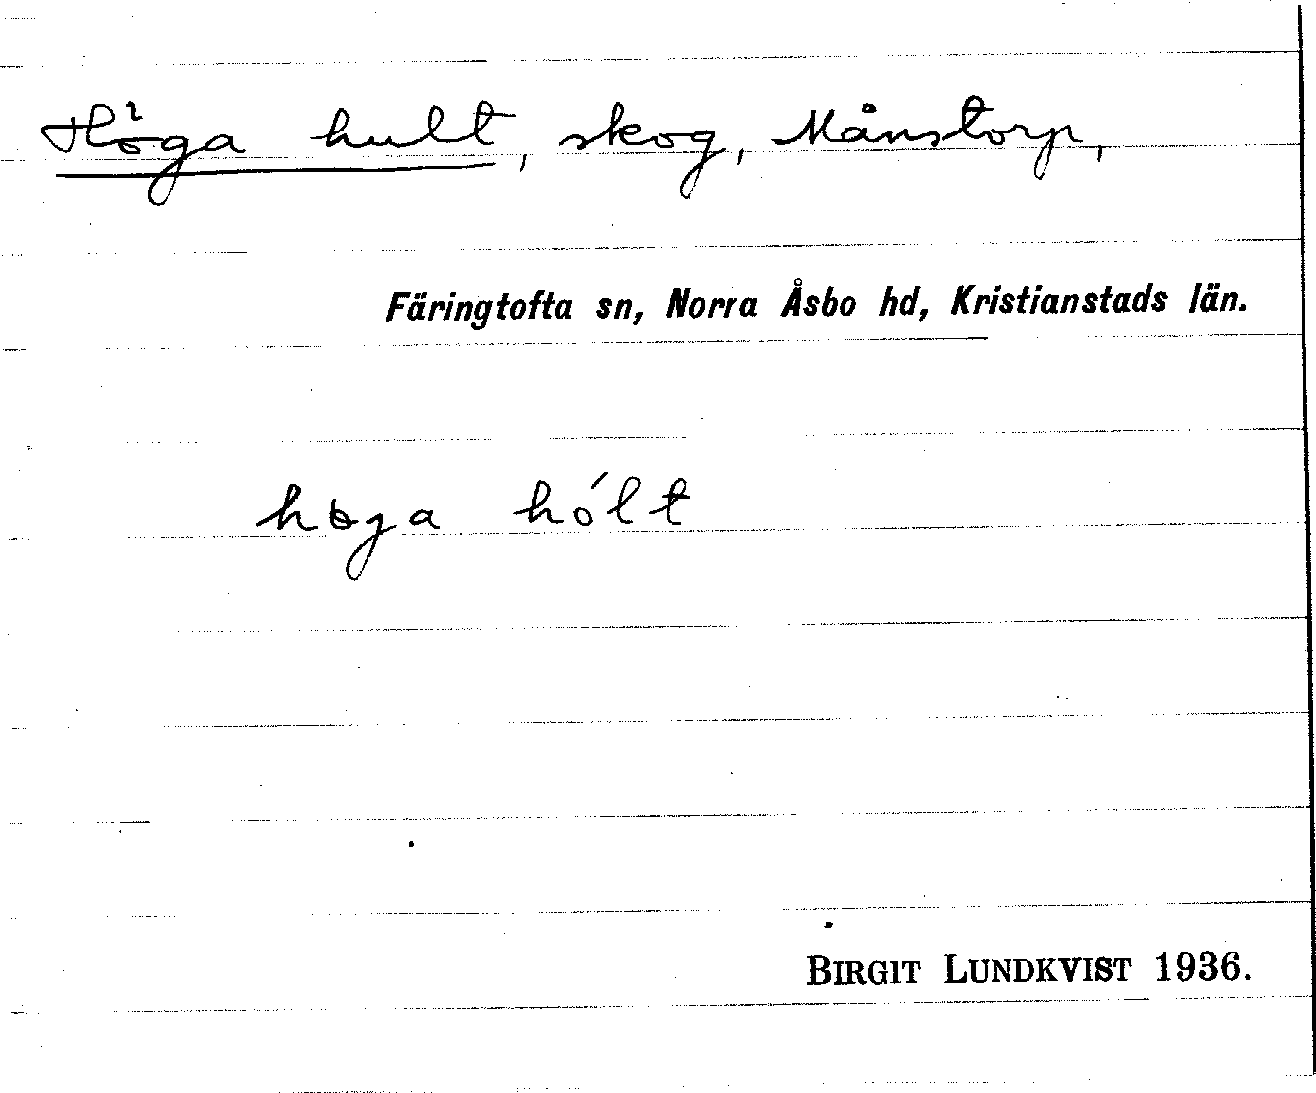 Höga hult, skog, Månstorp,
Färingtofta sn, Norra Åsbo hd, Kristianstads län.
høga hólt
BIRGIT LUNDKVIST 1936.